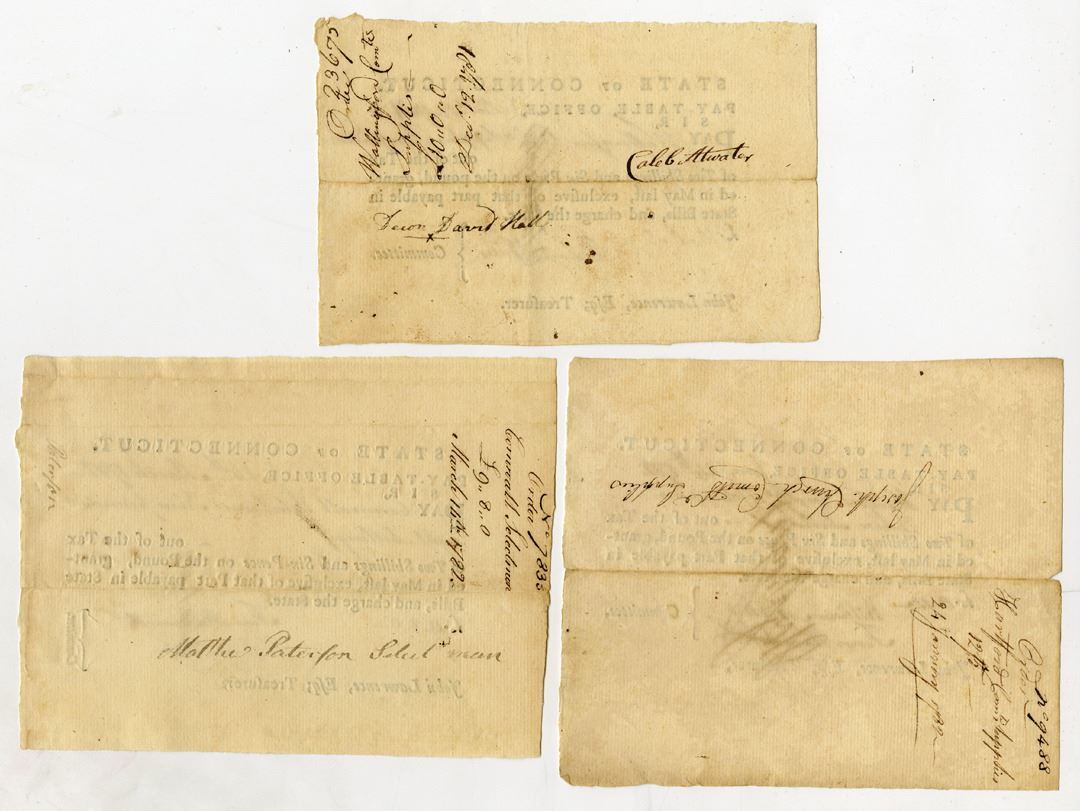 3675
Order
Wallingford Comte
Supplies
£10 " 0 " 0
Decr 12 1781
Caleb Atwater
Decon David Hall
No 7833
Order
Cornwall Selectmen
£9 " 8 " 0
March 14th 1782
Mathw Paterson Select man
Joseph Church Comtt of Supplies
No 9488
Order
Hartford Comtt supplies
12/6
24 January 1782
STATE OF CONNECTICUT.
PAY-TABLE OFFICE,
SIR,
PAY
out of the Tax
of Two Shillings and Six Pence on the pound, grant-
ed in May last, exclusive of that part payable in
State Bills, and charge the
£.
Committee.
John Lawrence, Esq; Treasurer.
STATE OF CONNECTICUT.
PAY-TABLE OFFICE,
SIR,
PAY
out of the Tax
of Two Shillings and Six Pence on the Pound, grant-
ed in May last, exclusive of that Part payable in State
Bills, and charge the State.
John Lawrence, Esq; Treasurer.
STATE OF CONNECTICUT.
PAY-TABLE OFFICE,
PAY
out of the Tax
of Two Shillings and Six Pence on the Pound, grant-
ed in May last, exclusive of that Part payable in
Committee.
John Lawrence, Esq;